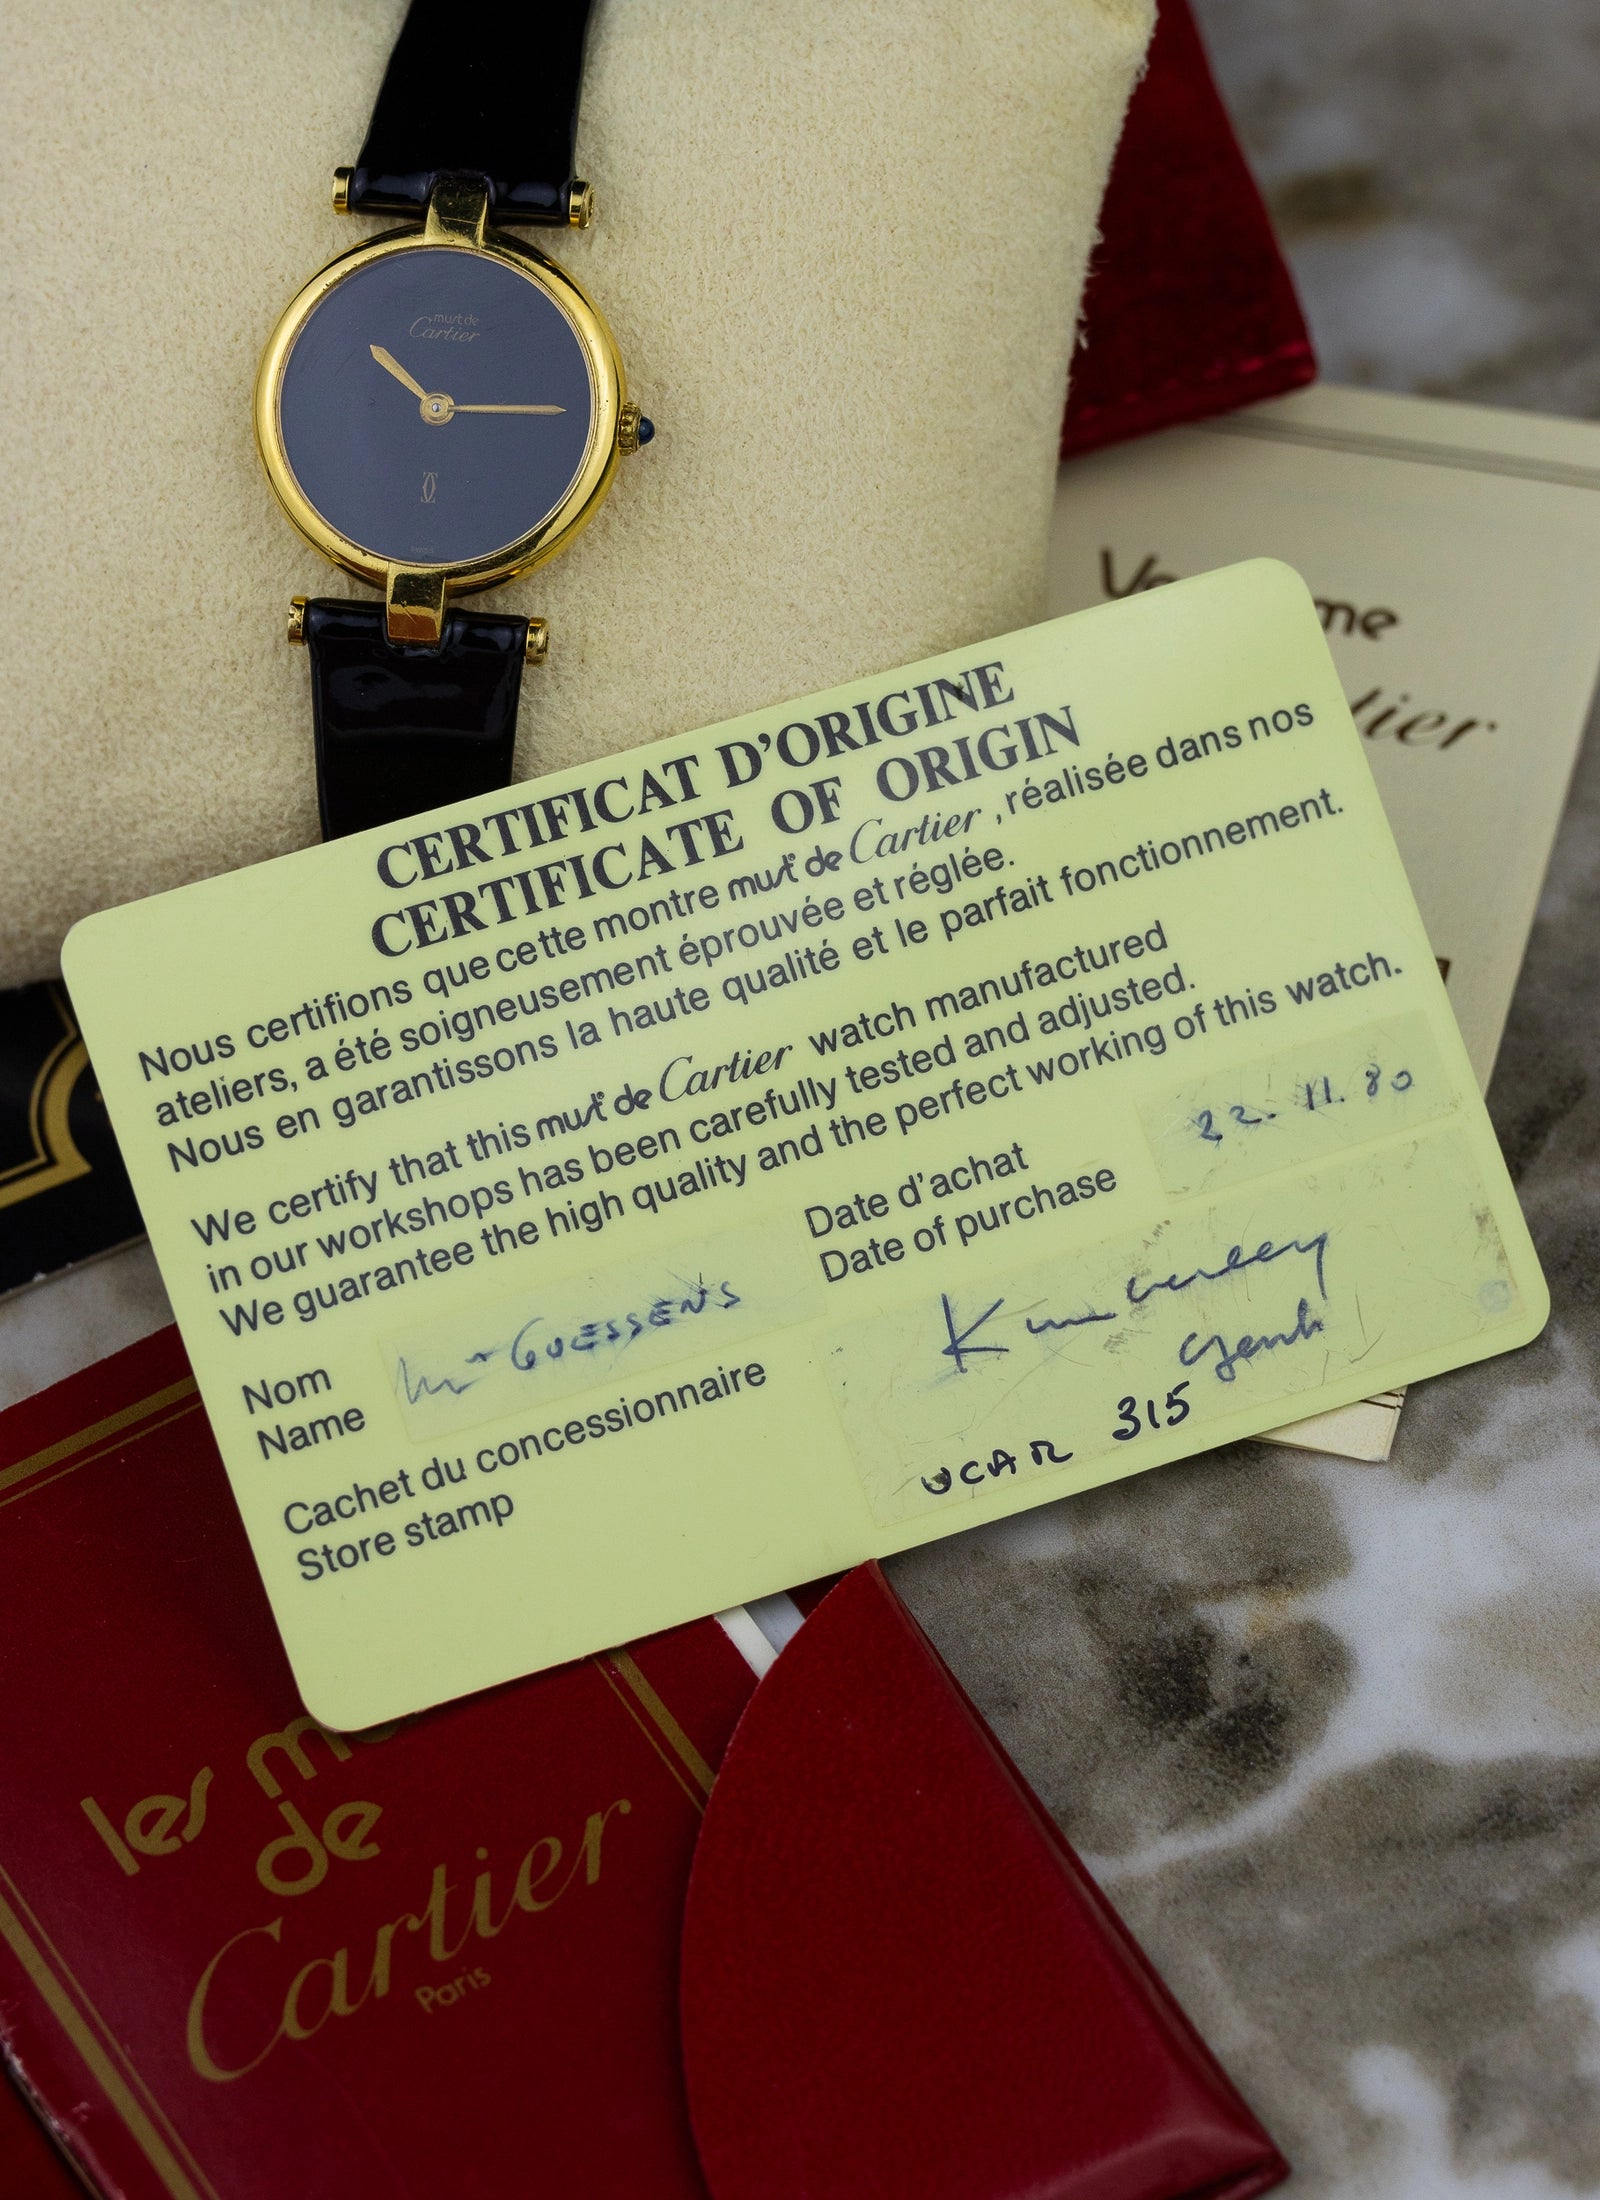 must de
Cartier
PARIS
CERTIFICAT D'ORIGINE
CERTIFICATE OF ORIGIN
Nous certifions que cette montre must de Cartier, réalisée dans nos
ateliers, a été soigneusement éprouvée et réglée.
Nous en garantissons la haute qualité et le parfait fonctionnement.
We certify that this must de Cartier watch manufactured
in our workshops has been carefully tested and adjusted.
We guarantee the high quality and the perfect working of this watch.
Date d'achat
Date of purchase
22.11.80
Nom
Name
GOESSENS
Cachet du concessionnaire
Store stamp
Genk
UCAR 315
les
de
Cartier
Paris